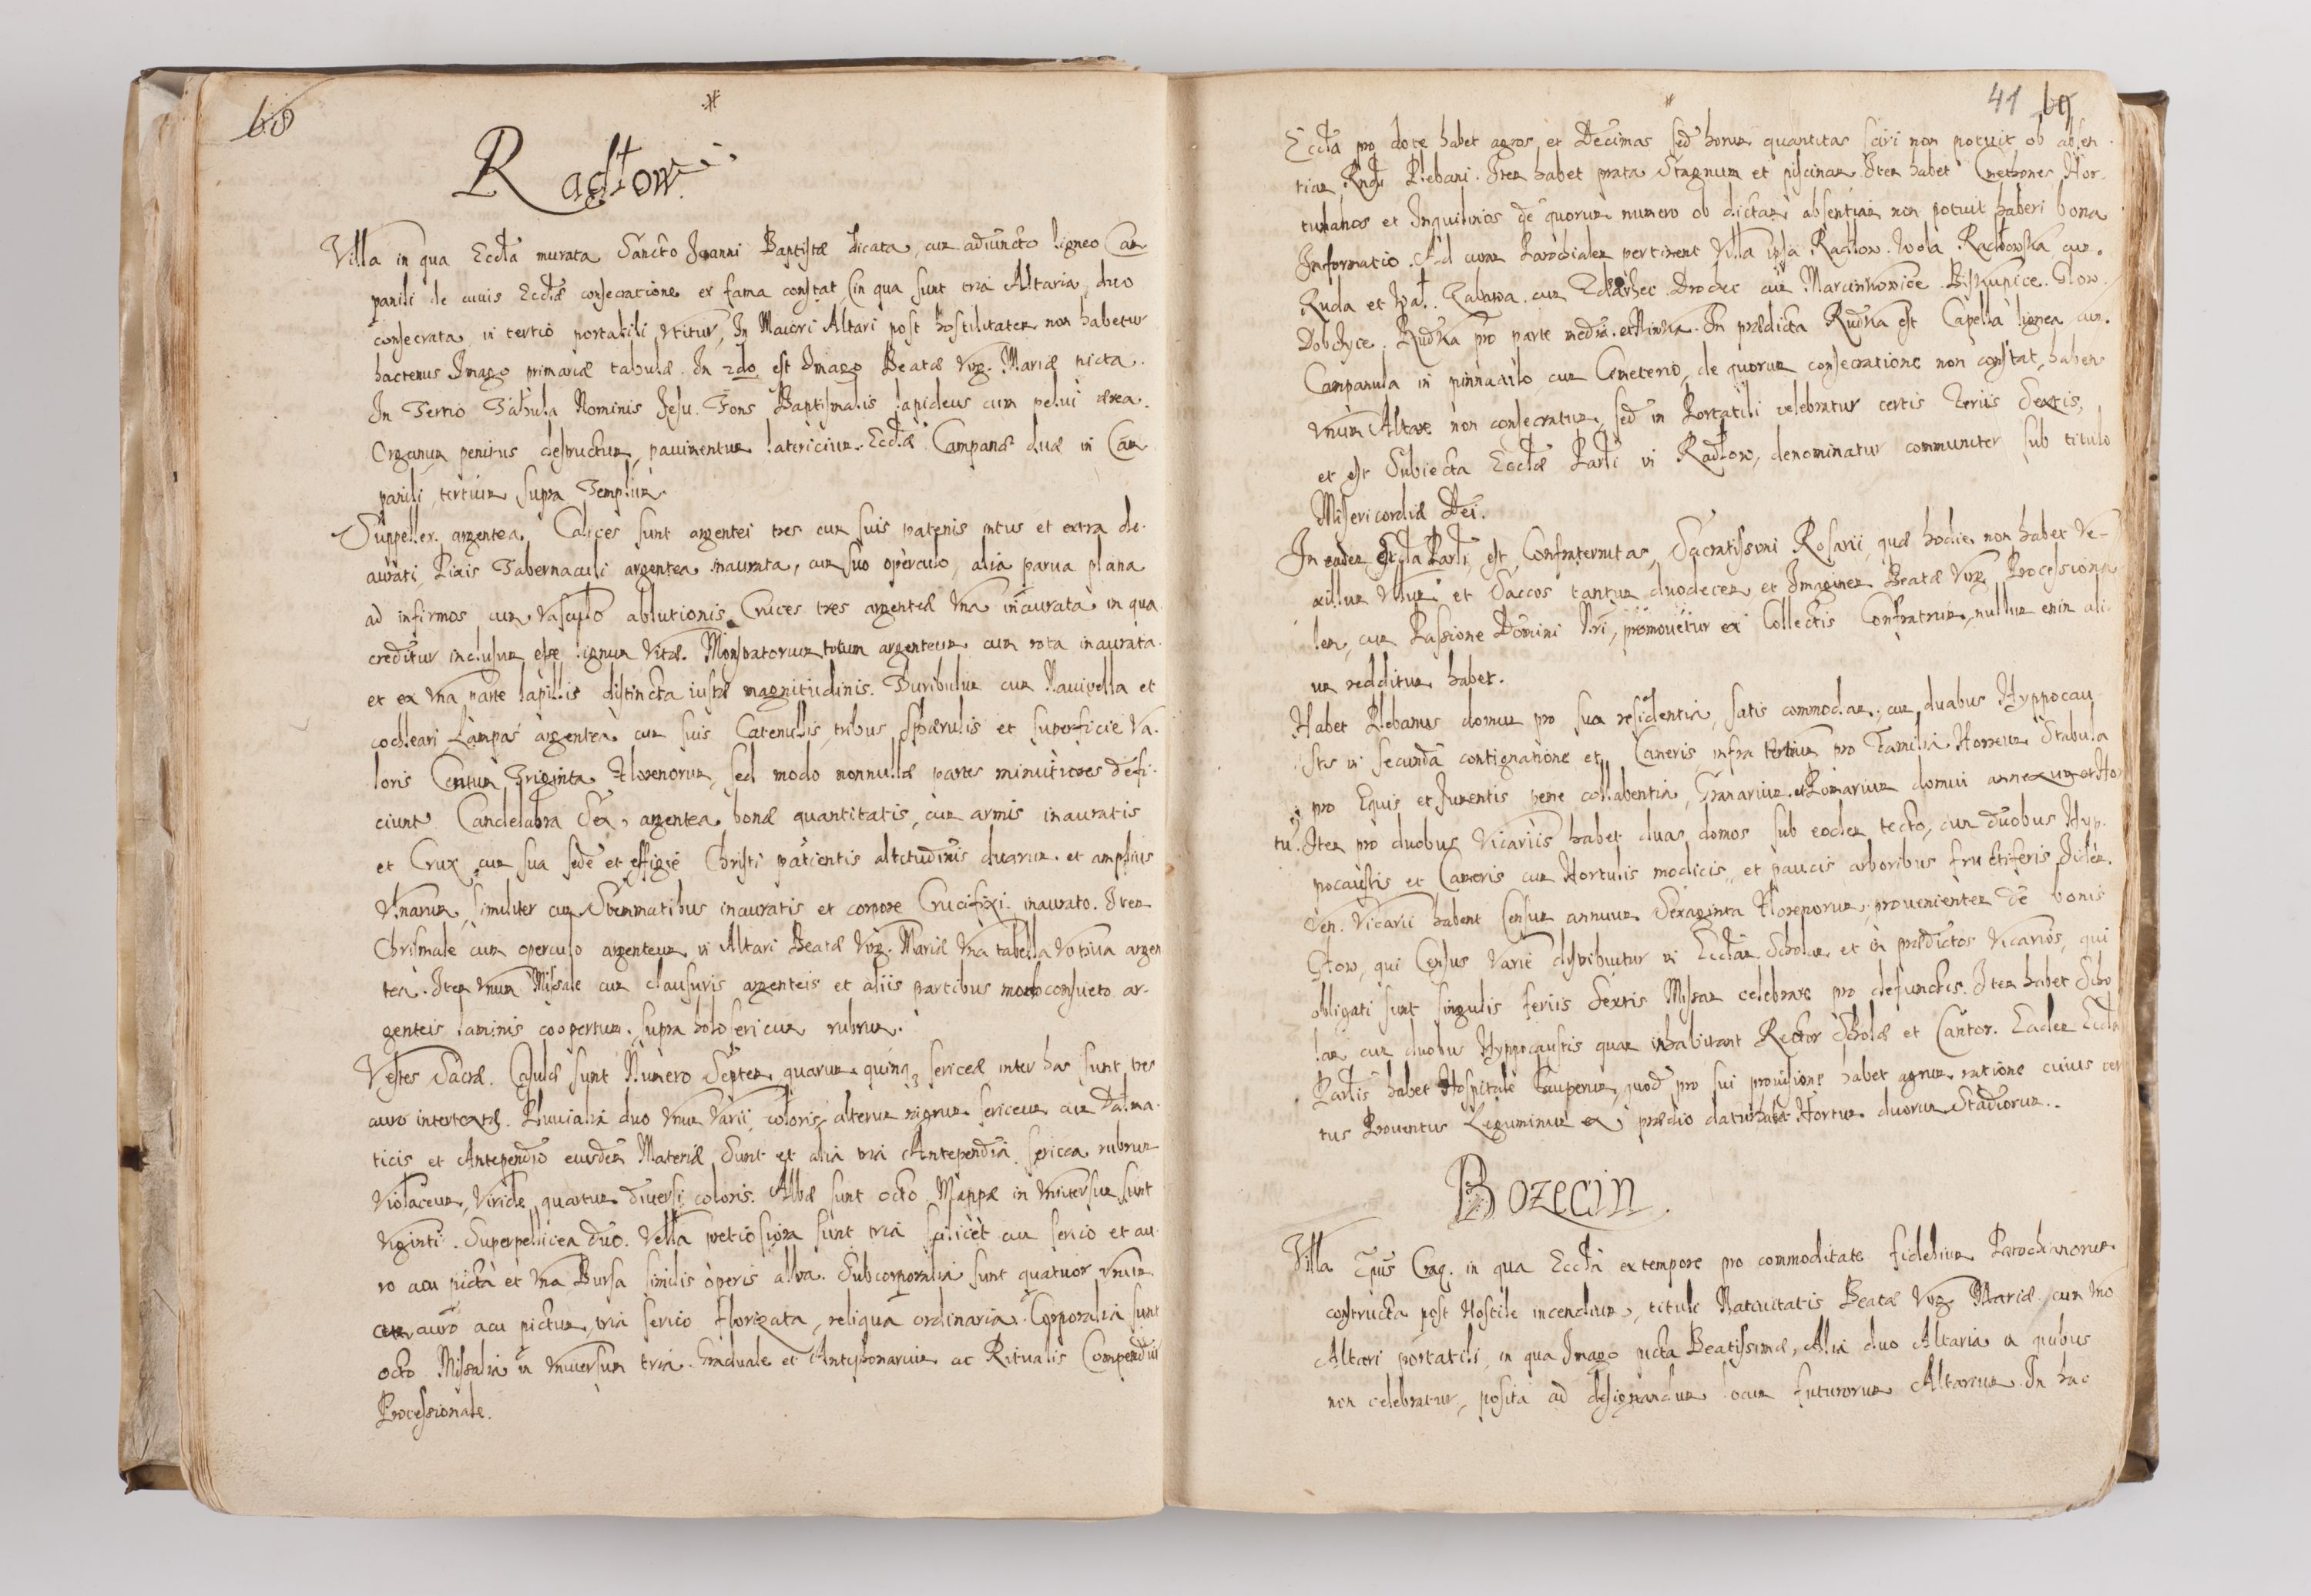 68
Radłow.
Villa in qua Eccła murata Sancto Joanni Baptistæ dicata, cum adiuncto ligneo Cam
panili de cuius Eccłæ consecratione ex fama constat, in qua sunt tria Altaria, duo
consecrata, in tertio portatili vtitur, In Maiori Altari post hostilitatem non habetur
hactenus Imago primariæ tabulæ. In 2do est Imago Beatæ Virg. Mariæ picta.
In Tertio Tabula Nominis Jesu. Fons Baptismalis lapideus cum pelui ærea.
Organum penitus destructum, pauimentum latericium. Eccłæ Campanæ duæ in Cam
panili, tertium supra Templum.
Suppellex argentea. Calices sunt argentei tres cum suis patenis intus et extra de-
aurati, Pixis Tabernaculi argentea inaurata, cum suo operculo, alia parua plana
ad infirmos cum vasculo ablutionis. Cruces tres argenteæ vna inaurata in qua
creditur inclusum esse lignum Vitæ. Monstratorium totum argenteum cum rota inaurata.
et ex vna parte lapillis distincta iustæ magnitudinis. Turibulum cum Nauicella et
cochleari, Lampas argentea cum suis Catenulis, tribus sphærulis et superficie va-
loris Centum Triginta Florenorum, sed modo nonnullæ partes minutiores defi-
ciunt. Candelabra Sex, argentea bonæ quantitatis, cum armis inauratis
et Crux cum sua sede et effigie Christi patientis altitudinis duarum et amplius
Vlnarum, similiter cum Stemmatibus inauratis et corpore Crucifixi inaurato. Item
Chrismale cum operculo argenteum, in Altari Beatæ Virg. Mariæ Vna tabella votiua argen
tea. Item vnum Missale cum clausuris argenteis et aliis partibus modo consueto ar-
genteis laminis coopertum, supra holosericum rubrum.
Vestes Sacræ. Casulæ sunt Numero Septem, quarum quinq; sericeæ inter has sunt tres
auro intertextæ. Pluuialia duo vnum varii coloris, alterum nigrum sericeum cum Dalma-
ticis et Antependio eiusdem Materiæ, Sunt et alia tria Antependia sericea, rubrum
Violaceum, Viride, quartum diuersi coloris. Albæ sunt octo. Mappæ in vniuersum sunt
Viginti. Superpellicea duo. Vella pretiosiora sunt tria scilicet cum serico et au-
ro acu picta et vna Bursa similis operis alba. Subcorporalia sunt quatuor vnum
cum auro acu pictum, tria serico florizata, reliqua ordinaria. Corporalia sunt
octo. Missalia in vniuersum tria. Graduale et Antiphonarium ac Ritualis Compendium
Processionale.
41 69
Eccła pro dote habet agros et Decimas sed horum quantitas sciri non potuit ob absen-
tiam Rndi Plebani. Item habet prata Stagnum et piscinam. Item habet Cmethones Hor-
tulanos et Inquilinos de quorum numero ob dictam absentiam non potuit haberi bona
Informatio. Ad curam Parochialem pertinent Villa ipsa Radłow. Wola Radłowska cum
Ruda et Wał. Zabawa cum Zdarzec. Drodec cum Marcinkowice. Biskupice. Glow.
Dobchyce. Rudka pro parte media. In prædicta Rudka est Capella lignea cum
Campanula in pinnaculo cum Cmeterio, de quorum consecratione non constat, habens
vnum Altare non consecratum, sed in Portatili celebratur certis Feriis Sextis,
et est Subiecta Eccłæ Parłi in Radłow, denominatur communiter sub titulo
Misericordiæ Dei.
In eadem Eccła Parłi est Confraternitas Sacratissimi Rosarii, quæ hodie non habet Ve-
xillum vllum et Saccos tantum duodecem et Imaginem Beatæ Virg. Processiona
lem, cum Passione Domini Nri, promouetur ex Collectis Confratrum, nullum enim ali-
um redditum habet.
Habet Plebanus domum pro sua residentia, satis commodam, cum duabus Hyppocau-
stis in secunda contignatione et Cameris, infra tertium pro Familia Horreum Stabula
pro Equis et Jumentis bene collabentia, Granarium et Pomarium domui annexum et Hor
tu. Item pro duobus Vicariis habet duas domos sub eodem tecto, cum duobus Hyp-
pocaustis et Cameris cum Hortulis modicis, et paucis arboribus fructiferis. Iidem
Ven. Vicarii habent Censum annuum Sexaginta Florenorum, prouenientem de bonis
Glow, qui Census varie distribuitur in Eccłam Scholam et in prædictos Vicarios, qui
obligati sunt singulis feriis Sextis Missam celebrare pro defunctis. Item habet Scho
lam cum duobus Hyppocaustis quam inhabitant Rector Scholæ et Cantor. Eadem Eccła
Parłis habet Hospitale Pauperum, quod pro sui prouisione habet agrum ratione cuius cer
tus Prouentus Leguminum ex prædio datur, habet Hortum duorum Stadiorum.
Bozecin.
Villa Epus Crac. in qua Eccła ex tempore pro commoditate fidelium Parochianorum
constructa post Hostile incendium, tituli Natiuitatis Beatæ Virg. Mariæ cum vno
Altari portatili, in qua Imago picta Beatissimæ, Alia duo Altaria in quibus
non celebratur, posita ad designandum locum futurorum Altarium. In hac